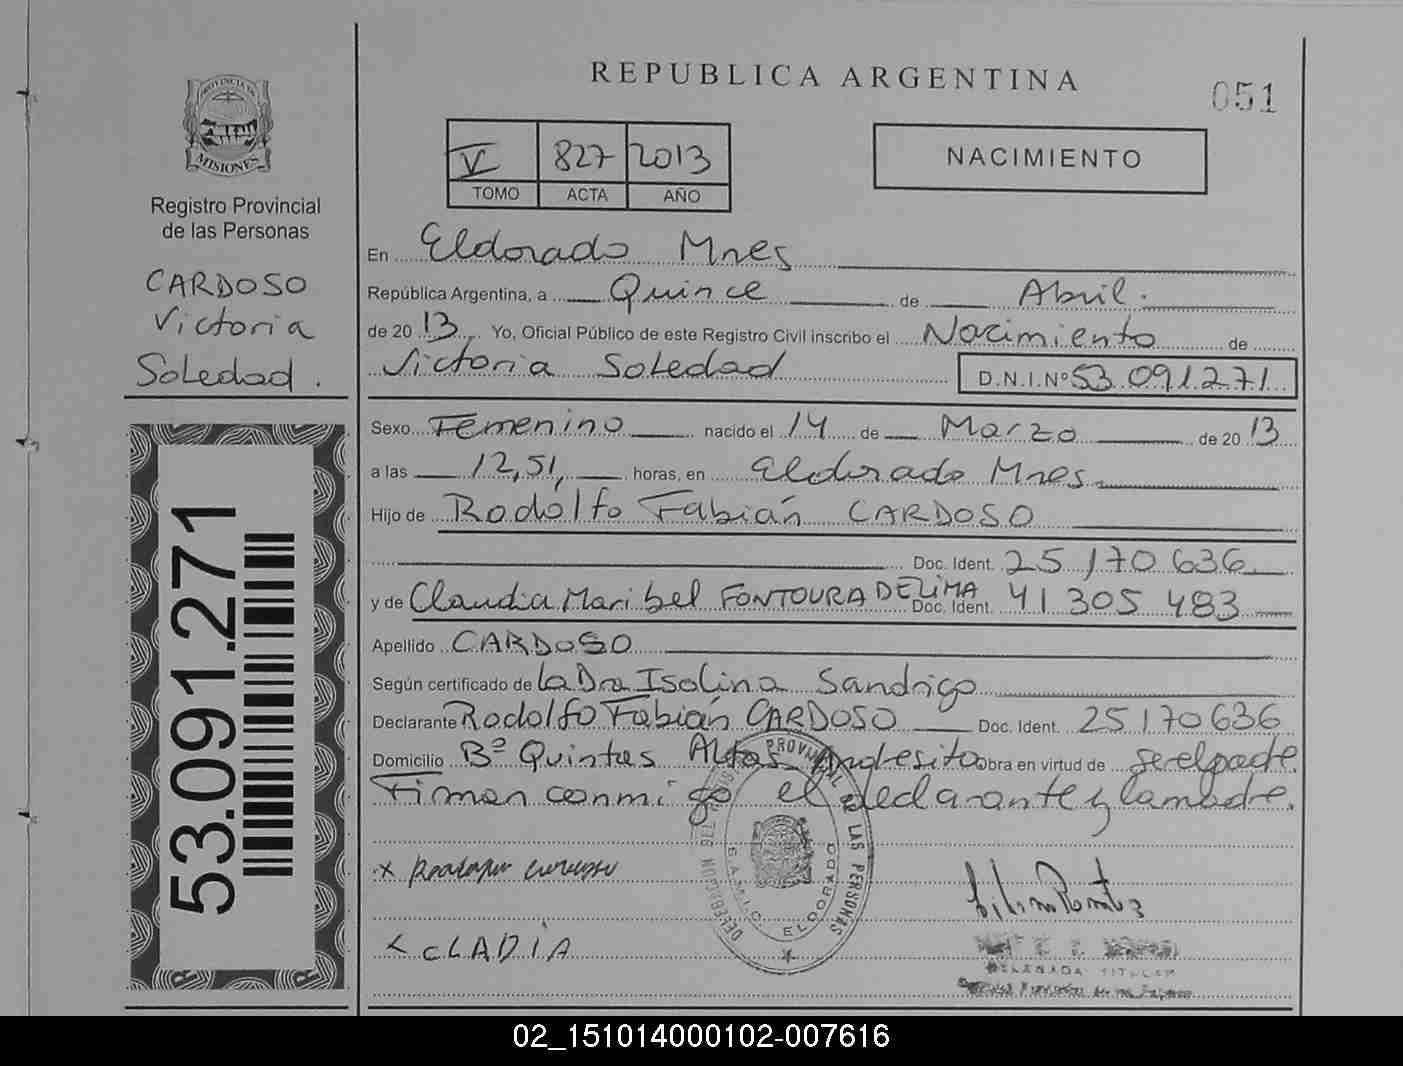 REPUBLICA ARGENTINA
051
PROVINCIA DE
MISIONES
Registro Provincial
de las Personas
CARDOSO
Victoria
Soledad.
53.091.271
V 827 2013
TOMO ACTA AÑO
NACIMIENTO
En Eldorado Mnes
República Argentina, a Quince de Abril.
de 2013 Yo, Oficial Público de este Registro Civil inscribo el Nacimiento de
Victoria Soledad D.N.I.Nº 53.091.271
Sexo Femenino nacido el 14 de Marzo de 2013
a las 12,51, horas, en Eldorado Mnes.
Hijo de Rodolfo Fabián CARDOSO
Doc. Ident. 25 170 636
y de Claudia Maribel FONTOURA DE LIMA Doc. Ident. 41 305 483
Apellido CARDOSO
Según certificado de La Dra Isolina Sandrigo
Declarante Rodolfo Fabián CARDOSO Doc. Ident. 25170636
Domicilio Bº Quintas Altas Andresito Obra en virtud de ser el padre.
Firman conmigo el declarante y la madre.
DELEGACION DEL REGISTRO PROVINCIAL DE LAS PERSONAS
ELDORADO
x
x CLADIA
DELEGADA TITULAR
02_151014000102-007616